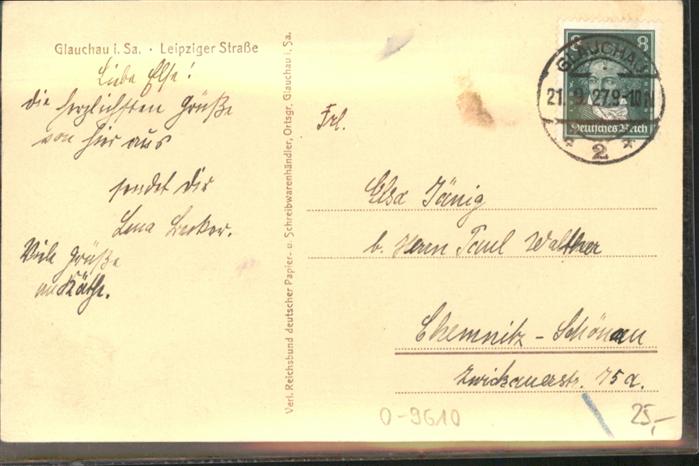 Glauchau i. Sa. · Leipziger Straße
Liebe Else!
die herzlichsten Grüße
von hier aus
sendet dir
Lena
Viele Grüße
an Käthe.
Verl. Reichsbund deutscher Papier- u. Schreibwarenhändler, Ortsgr. Glauchau i. Sa.
8
GLAUCHAU
21.9.27.9-10N
Deutsches Reich
* 2 *
Frl.
Elsa Jänig
b. Herrn Paul Walther
Chemnitz-Schönau
Zwickauerstr. 75a.
0-9610
25,-